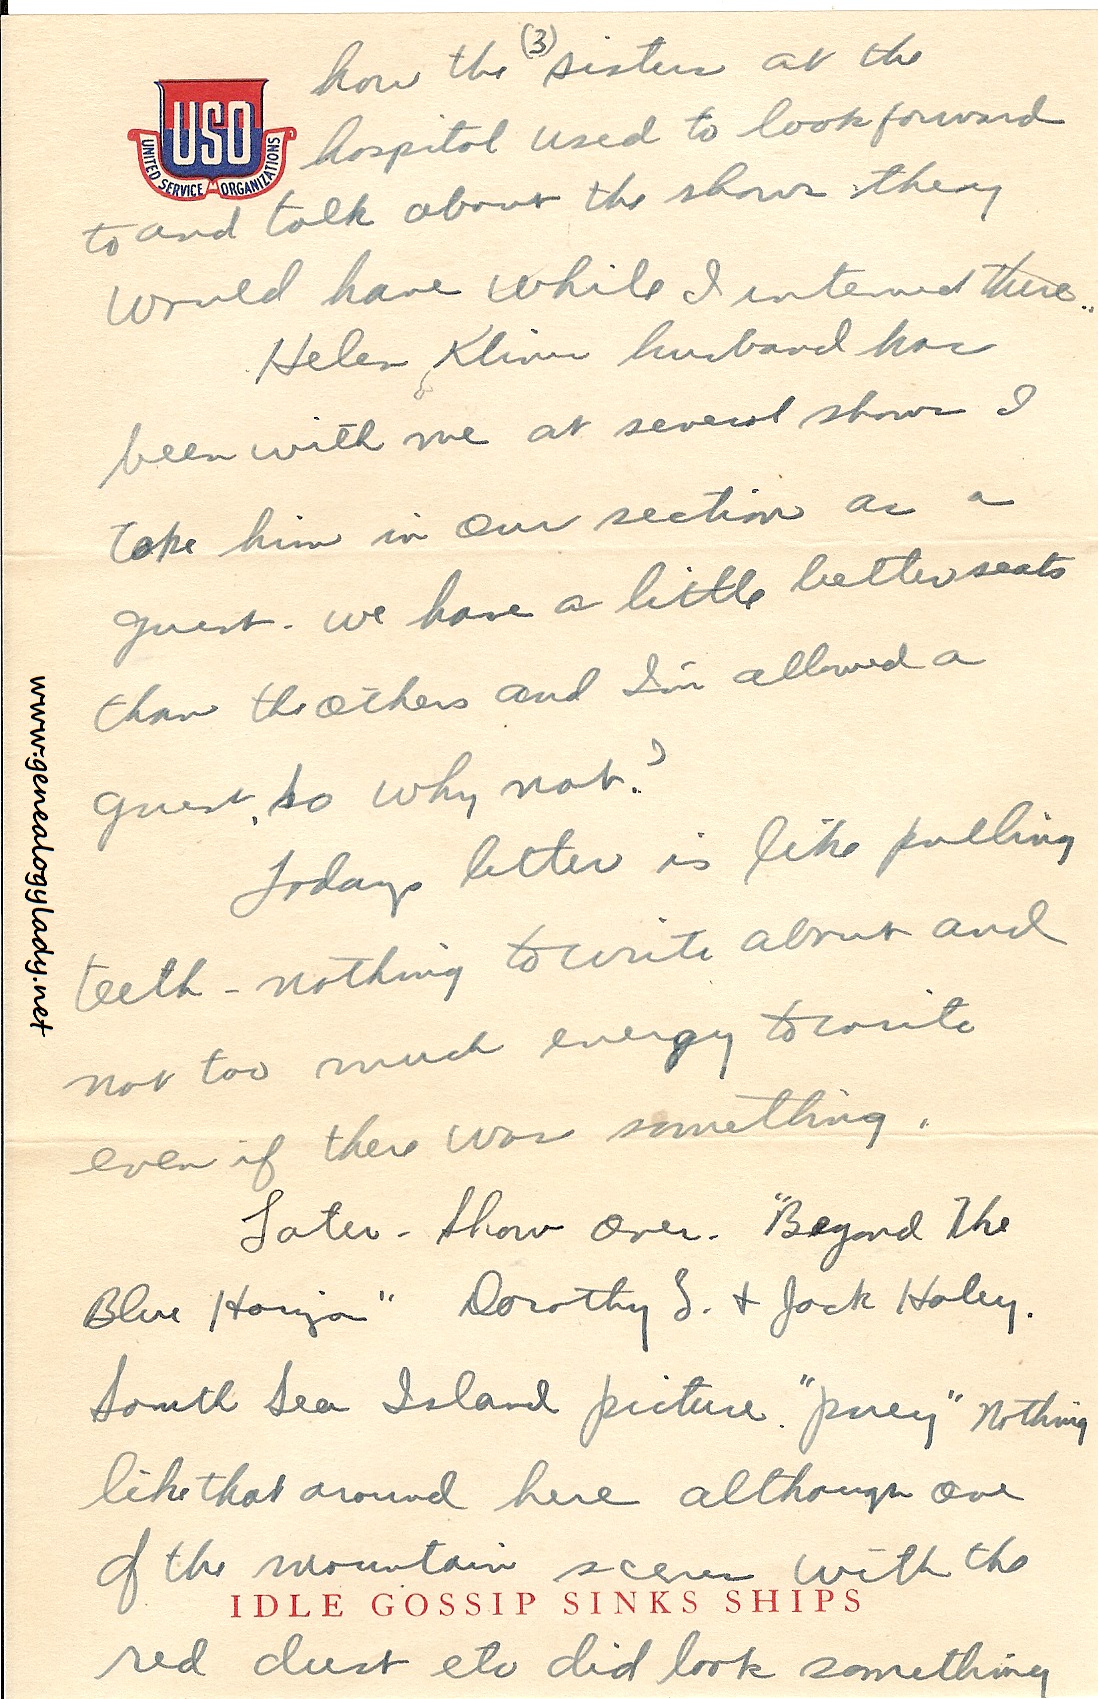 (3)
how the sisters at the
USO
UNITED SERVICE ORGANIZATIONS
hospital used to look forward
to and talk about the shows they
would have while I interned there.
Helen Klines husband has
been with me at several shows I
take him in our section as a
guest. we have a little better seats
than the others and I'm allowed a
guest, so why not?
Todays letter is like pulling
teeth - nothing to write about and
not too much energy to write
even if there was something.
Later - Show over. "Beyond The
Blue Horizon" Dorothy L. + Jack Haley.
South Sea Island picture. "purey" Nothing
like that around here although one
of the mountain scenes with the
IDLE GOSSIP SINKS SHIPS
red dust etc did look something
www.genealogylady.net